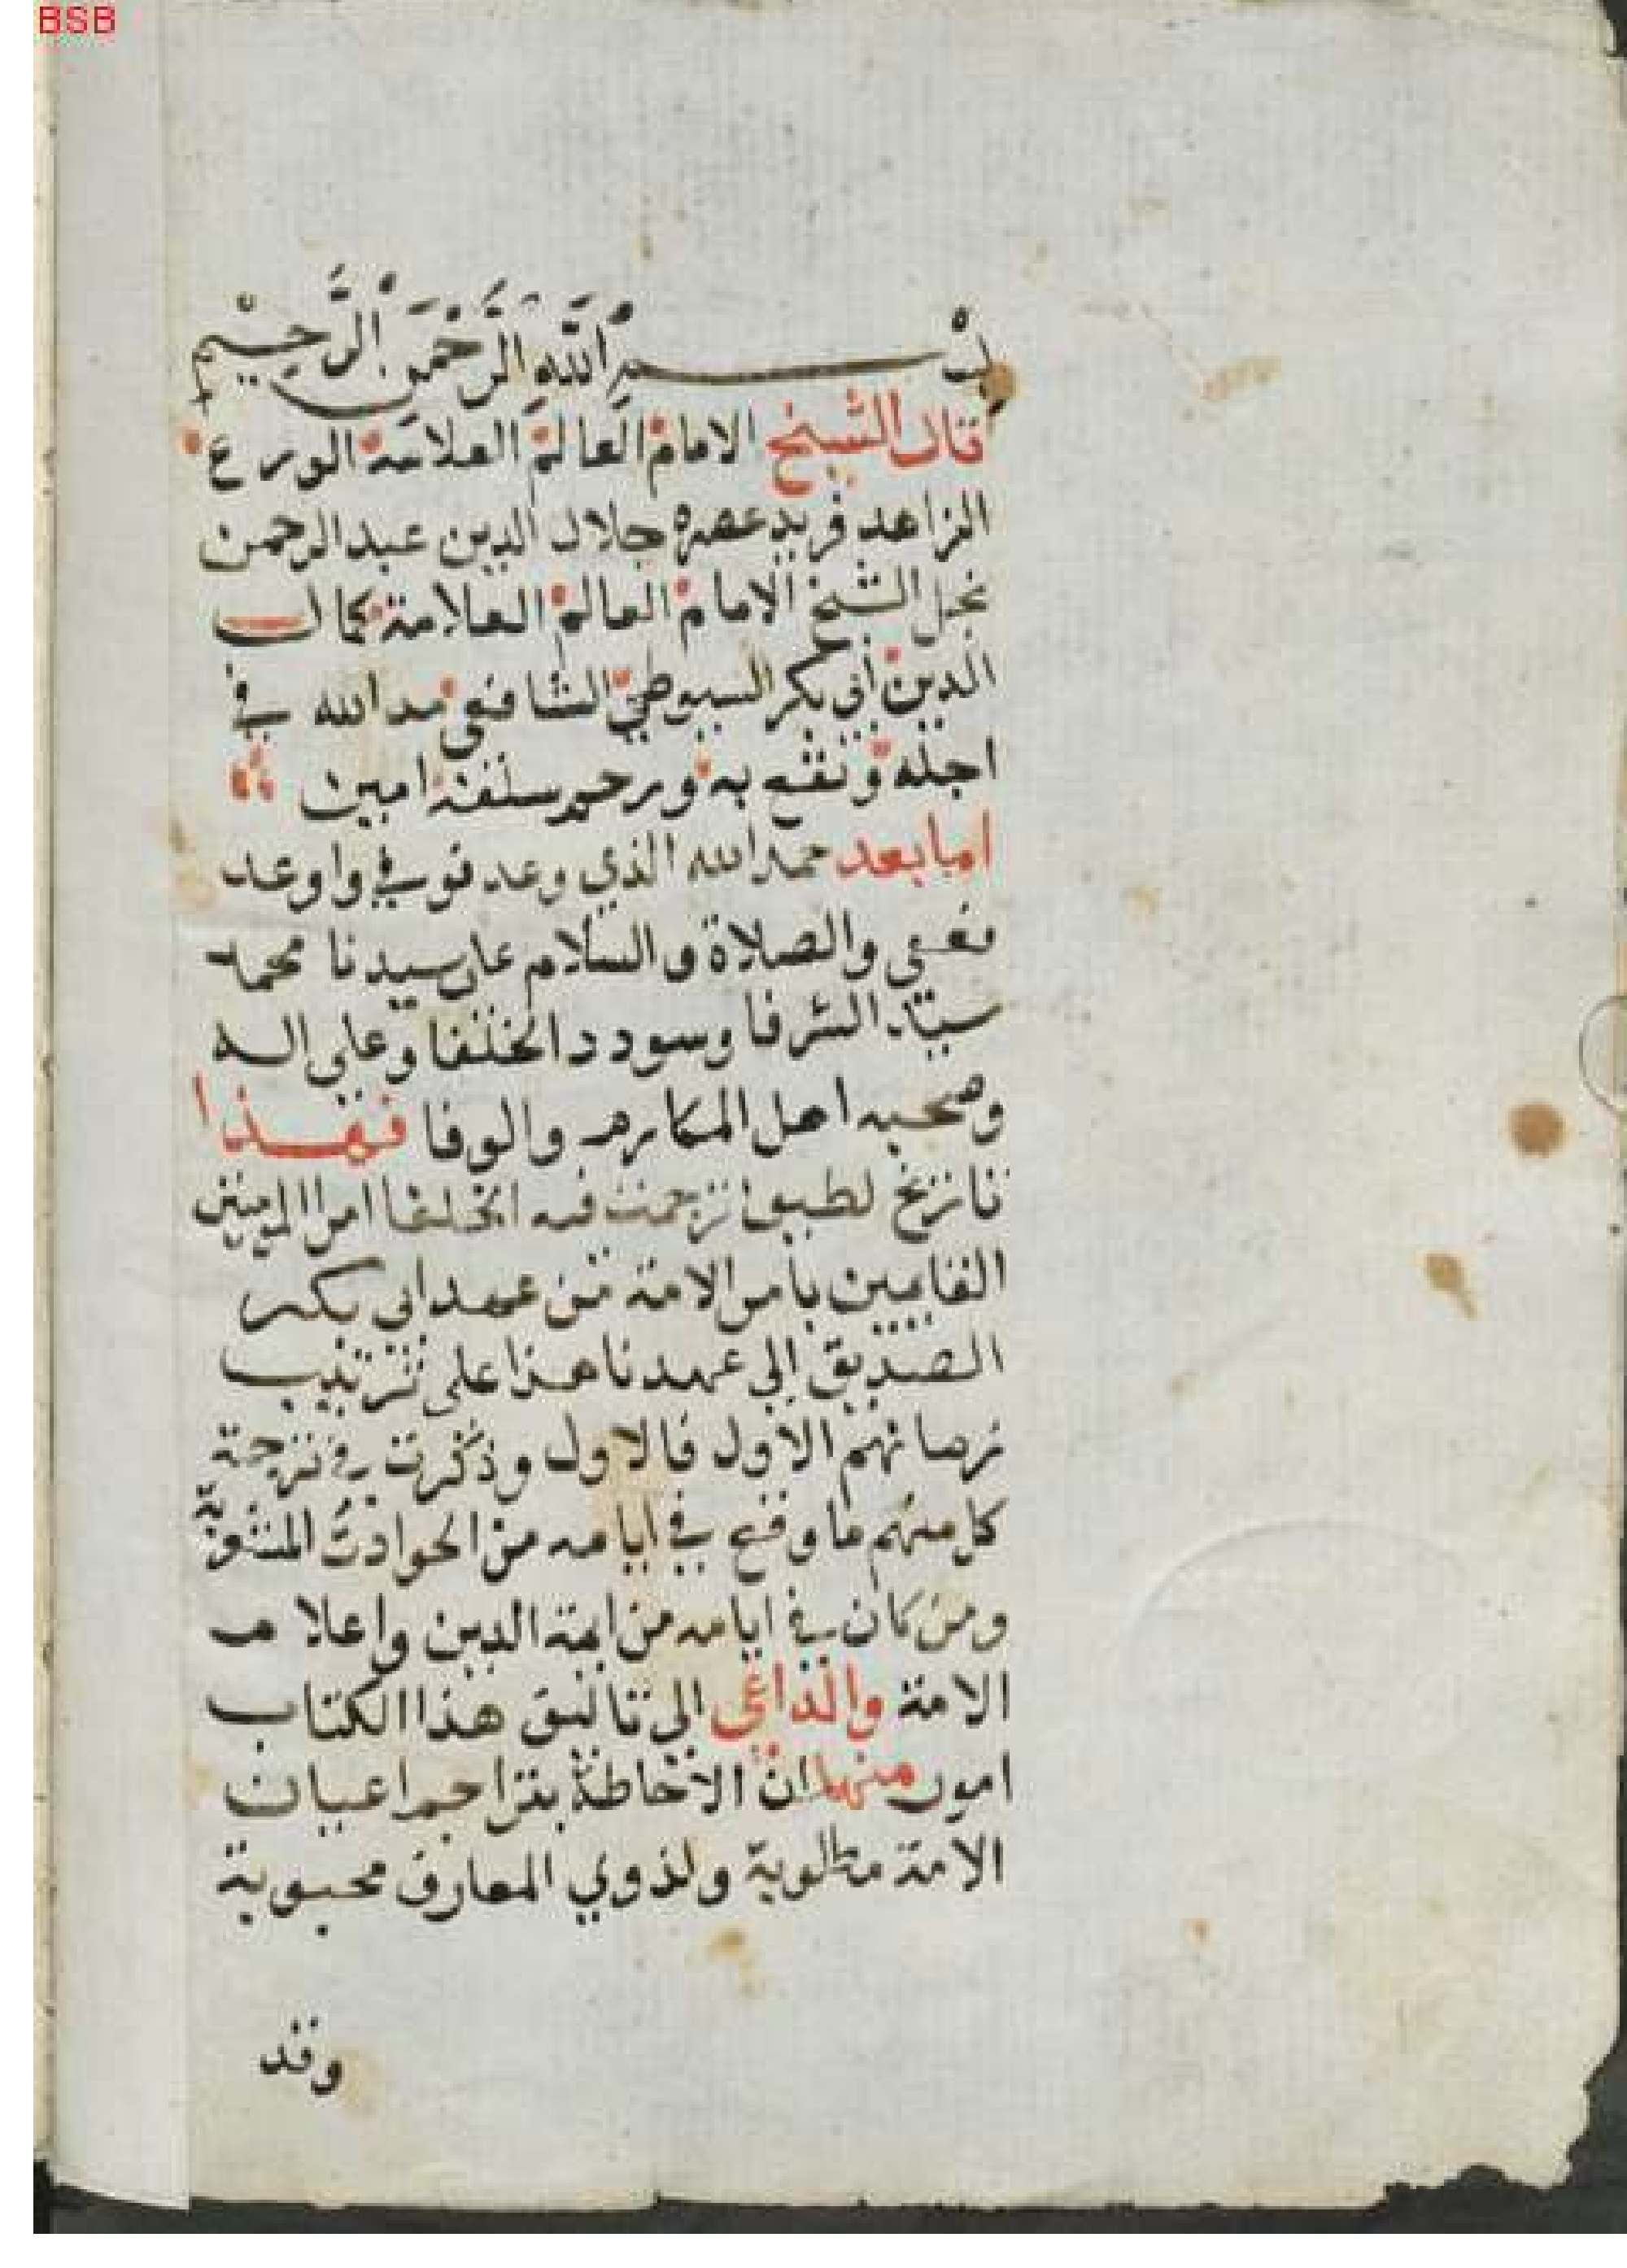 BSB
بسم الله الرحمن الرحيم
قال الشيخ الامام العالم العلامة الورع
الزاهد فريد عصره جلال الدين عبد الرحمن
نجل الشيخ الامام العالم العلامة كمال
الدين أبي بكر السيوطي الشافعي مد الله في
اجله ونفع به ورحم سلفه امين
اما بعد حمد الله الذي وعد فوفي واوعد
فعفى والصلاة والسلام على سيدنا محمد
سيد الشرفا وسودد الخلفا وعلى اله
وصحبه اهل المكارم والوفا فهذا
تاريخ لطيف ترجمت فيه الخلفا امرا المومنين
القايمين بامر الامة من عهد ابى بكر
الصديق الي عهدنا هذا على ترتيب
زمانهم الاول فالاول وذكرت في ترجمة
كل منهم ما وقع في ايامه من الحوادث
ومن كان في ايامه من ايمة الدين واعلام
الامة والداعى الى تاليف هذا الكتاب
امور منها ان الاحاطة بتراجم اعيان
الامة مطلوبة ولذوي المعارف محبوبة
وقد